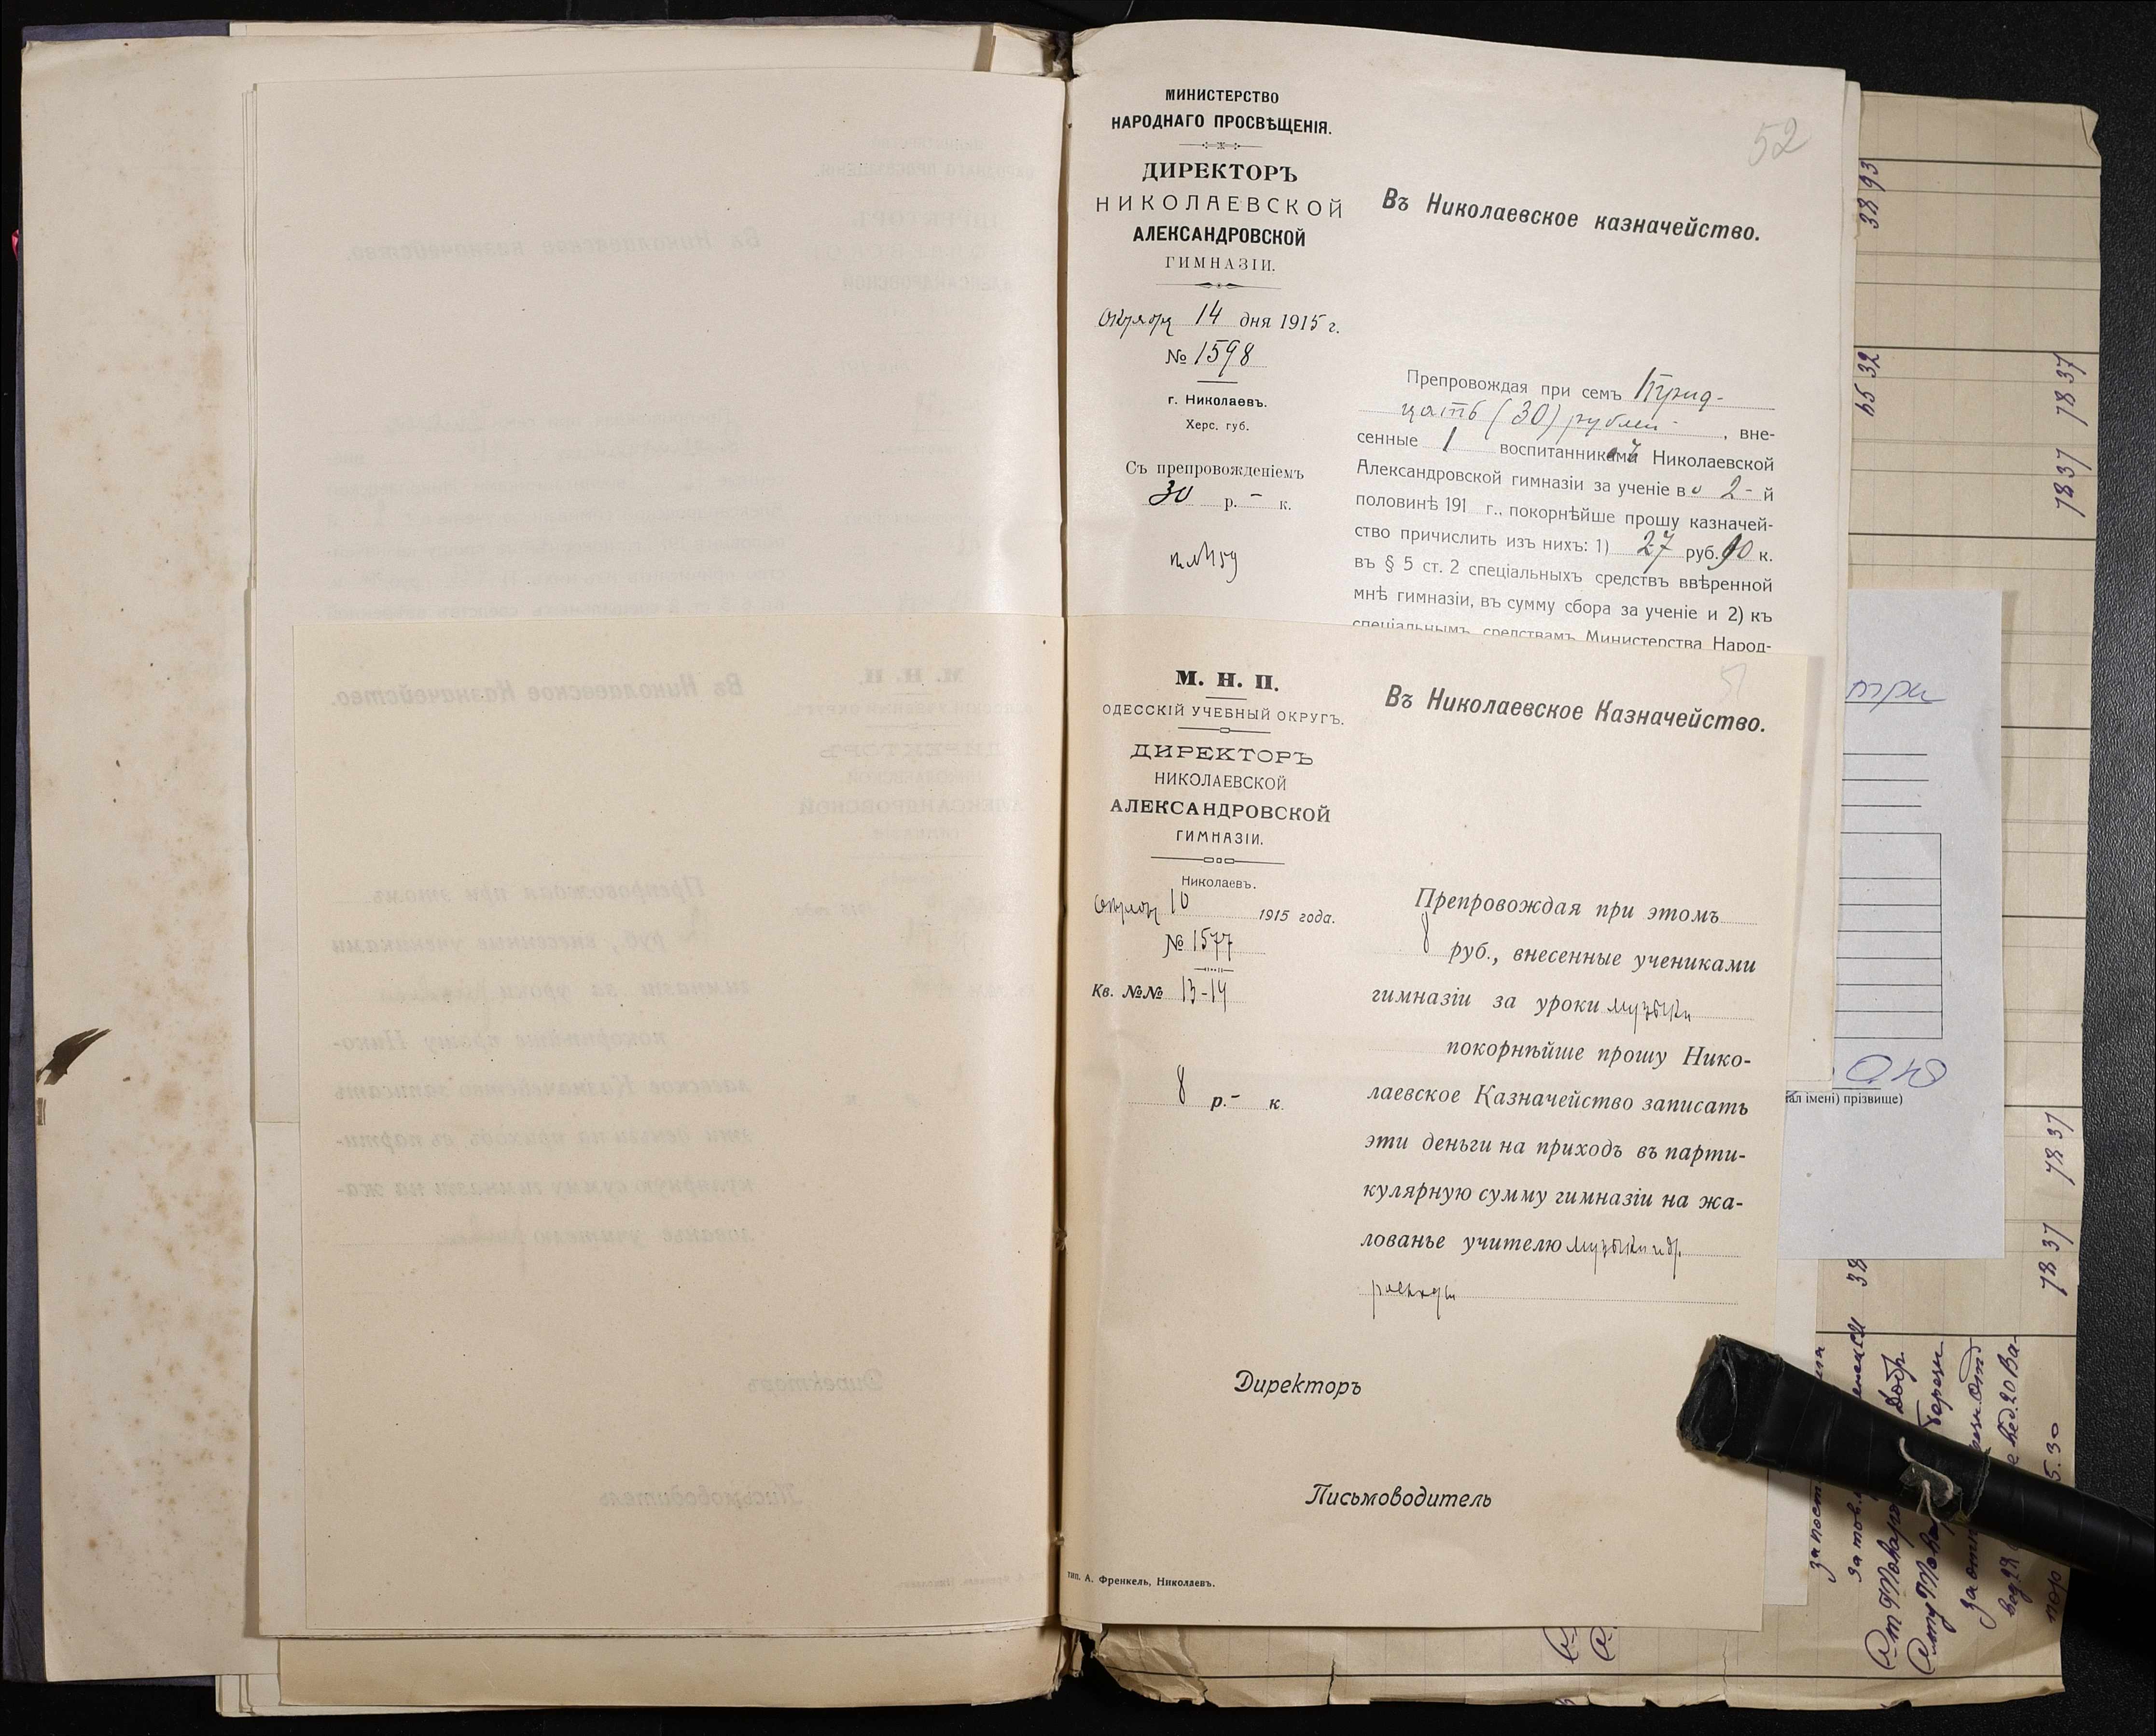 МИНИСТЕРСТВО
НАРОДНАГО ПРОСВѢЩЕНІЯ.
ДИРЕКТОРЪ
НИКОЛАЕВСКОЙ
АЛЕКСАНДРОВСКОЙ
ГИМНАЗІИ.
Октября 14 дня 1915 г.
№ 1598
г. Николаевъ.
Херс. губ.
Съ препровожденіемъ
30 р. - к.
52
Въ Николаевское казначейство.
Препровождая при семъ Трид-
цать (30) рублей, вне-
сенные 1 воспитанникамі Николаевской
Александровской гимназіи за ученіе во 2-й
половинѣ 191 г., покорнѣйше прошу казначей-
ство причислить изъ нихъ: 1) 27 руб. 90 к.
въ § 5 ст. 2 спеціальныхъ средствъ ввѣренной
мнѣ гимназіи, въ сумму сбора за ученіе и 2) къ
спеціальнымъ средствамъ Министерства Народ-
М. Н. П.
ОДЕССКІЙ УЧЕБНЫЙ ОКРУГЪ.
ДИРЕКТОРЪ
НИКОЛАЕВСКОЙ
АЛЕКСАНДРОВСКОЙ
ГИМНАЗІИ.
Николаевъ.
Октября 10 1915 года.
№ 1577
Кв. №№ 13-14
8 р. - к.
51
Въ Николаевское Казначейство.
Препровождая при этомъ
8 руб., внесенные учениками
гимназіи за уроки музыки
покорнѣйше прошу Нико-
лаевское Казначейство записать
эти деньги на приходъ въ парти-
кулярную сумму гимназіи на жа-
лованье учителю музыки и др.
расходы
Директоръ
Письмоводитель
тип. А. Френкель, Николаевъ.
три
ал імені) прізвище)
38 93
65 32
78 37
78 37
78 37
78 37
38
5.30